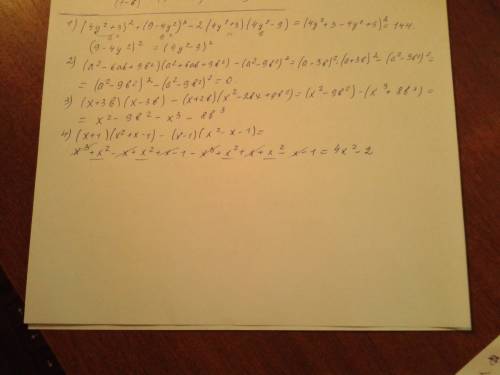 1) (4y²+3)²+(9-4y²)²-2(4y²+3)(4y²-9)=(4y²+3-4y²+9)²=144.
(9-4y²)²=(4y²-9)²
2) (a²-6ab+9b²)(a²+6ab+9b²)-(a²-9b²)²=(a-3b)²·(a+3b)²-(a²-9b²)²=
=(a²-9b²)²-(a²-9b²)²=0.
3) (x+3b)(x-3b)-(x+2b)(x²-2bx+4b²)=(x²-9b²)-(x³+8b³)=
=x²-9b²-x³-8b³
4) (x+1)(x²+x-1)-(x-1)(x²-x-1)=
x³+x²-x+x²+x-1-x³+x²+x+x²-x-1=4x²-2